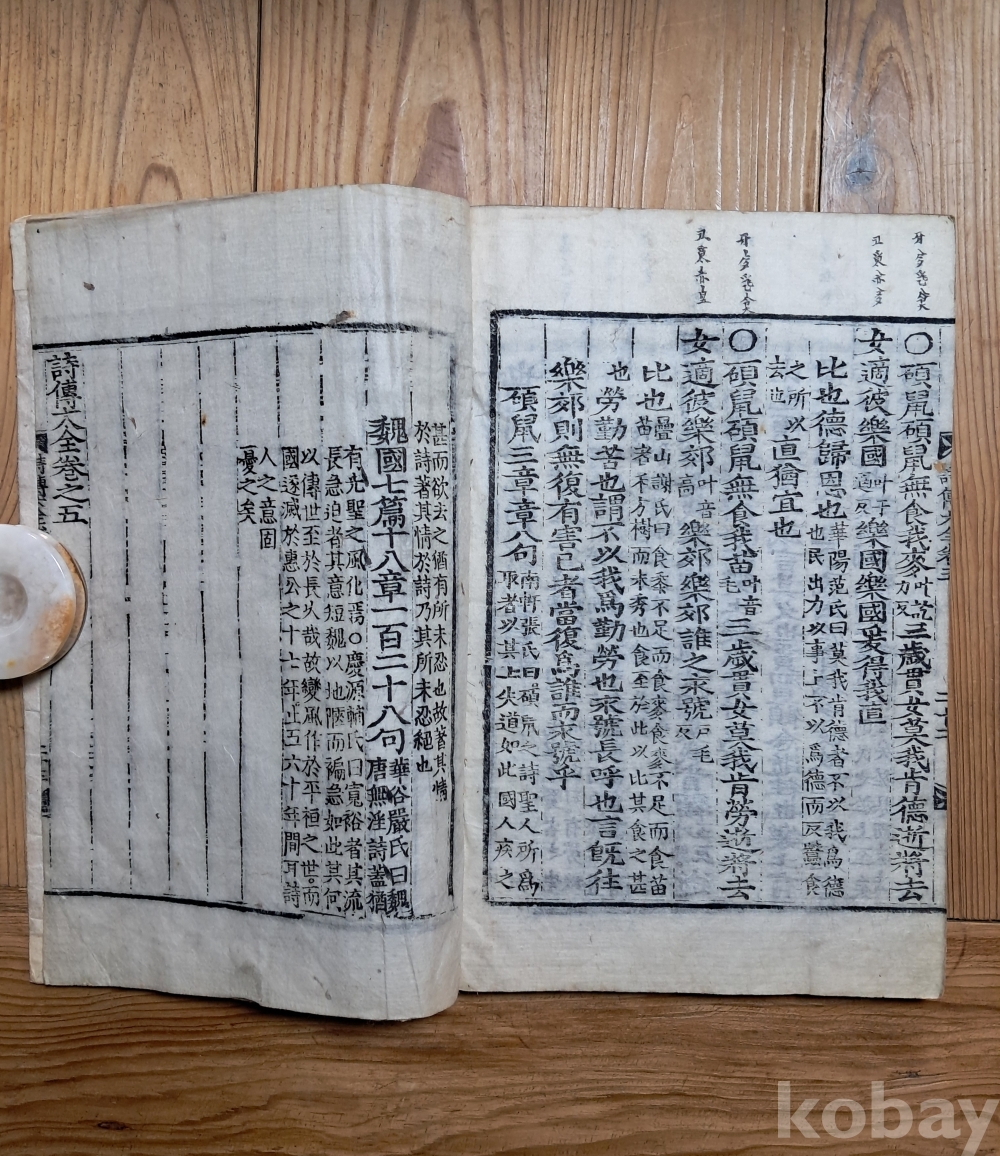 ○碩鼠碩鼠無食我麥叶訖力反三歲貫女莫我肯德逝將去
女適彼樂國叶于逼反樂國樂國爰得我直
比也德歸恩也華陽范氏曰莫我肯德者不以我爲德
也民出力以事上上不以爲德而反蠶食
之所以
去也直猶宜也
○碩鼠碩鼠無食我苗叶音毛三歲貫女莫我肯勞逝將去
女適彼樂郊叶音高樂郊樂郊誰之永號戶毛反
比也疊山謝氏曰食黍不足而食麥食麥不足而食苗
苗者禾方樹而未秀也食至於此以比其食之甚
也勞勤苦也謂不以我爲勤勞也永號長呼也言旣往
樂郊則無復有害己者當復爲誰而永號乎
碩鼠三章章八句南軒張氏曰碩鼠之詩聖人所爲
取者以其上失道如此國人疾之
甚而欲去之猶有所未忍也故著其情
於詩著其情於詩乃其所未忍絕也
魏國七篇十八章一百二十八句華谷嚴氏曰魏
唐無淫詩蓋猶
有先聖之風化焉○慶源輔氏曰寬裕者其流
長急迫者其意短魏以地陿而褊急如此其何
以傳世至於長久哉故變風作於平桓之世而
國遂滅於惠公之十七年止五六十年間耳詩
人之意固
憂之矣
詩傳大全卷之五
kobay